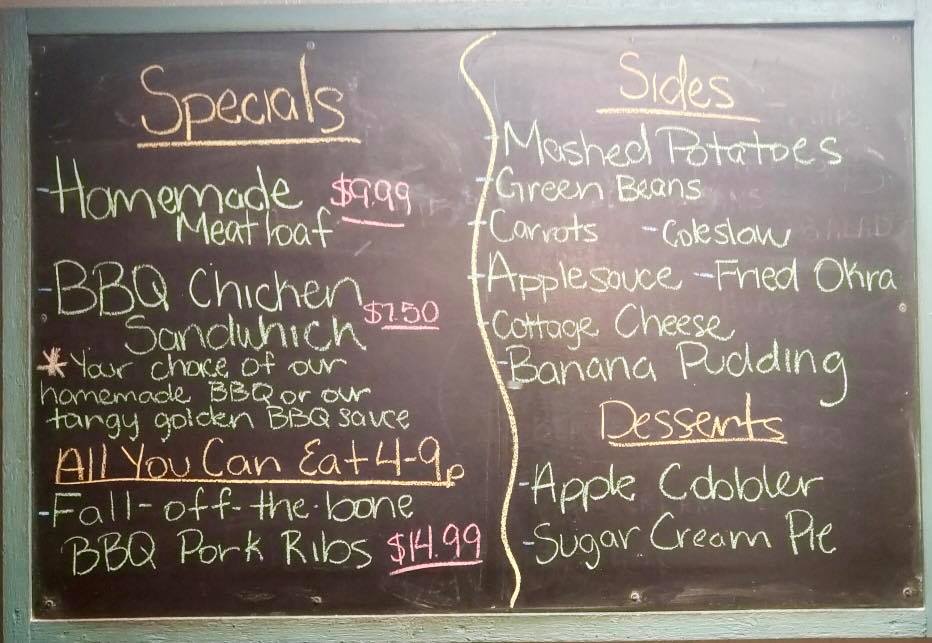 Specials
-Homemade $9.99
Meatloaf
-BBQ Chicken
Sandwhich $7.50
* Your choice of our
homemade BBQ or our
tangy golden BBQ sauce
All You Can Eat 4-9p
-Fall-off-the-bone
BBQ Pork Ribs $14.99
Sides
-Mashed Potatoes
-Green Beans
-Carrots -Coleslaw
-Applesauce -Fried Okra
-Cottage Cheese
-Banana Pudding
Desserts
-Apple Cobbler
-Sugar Cream Pie